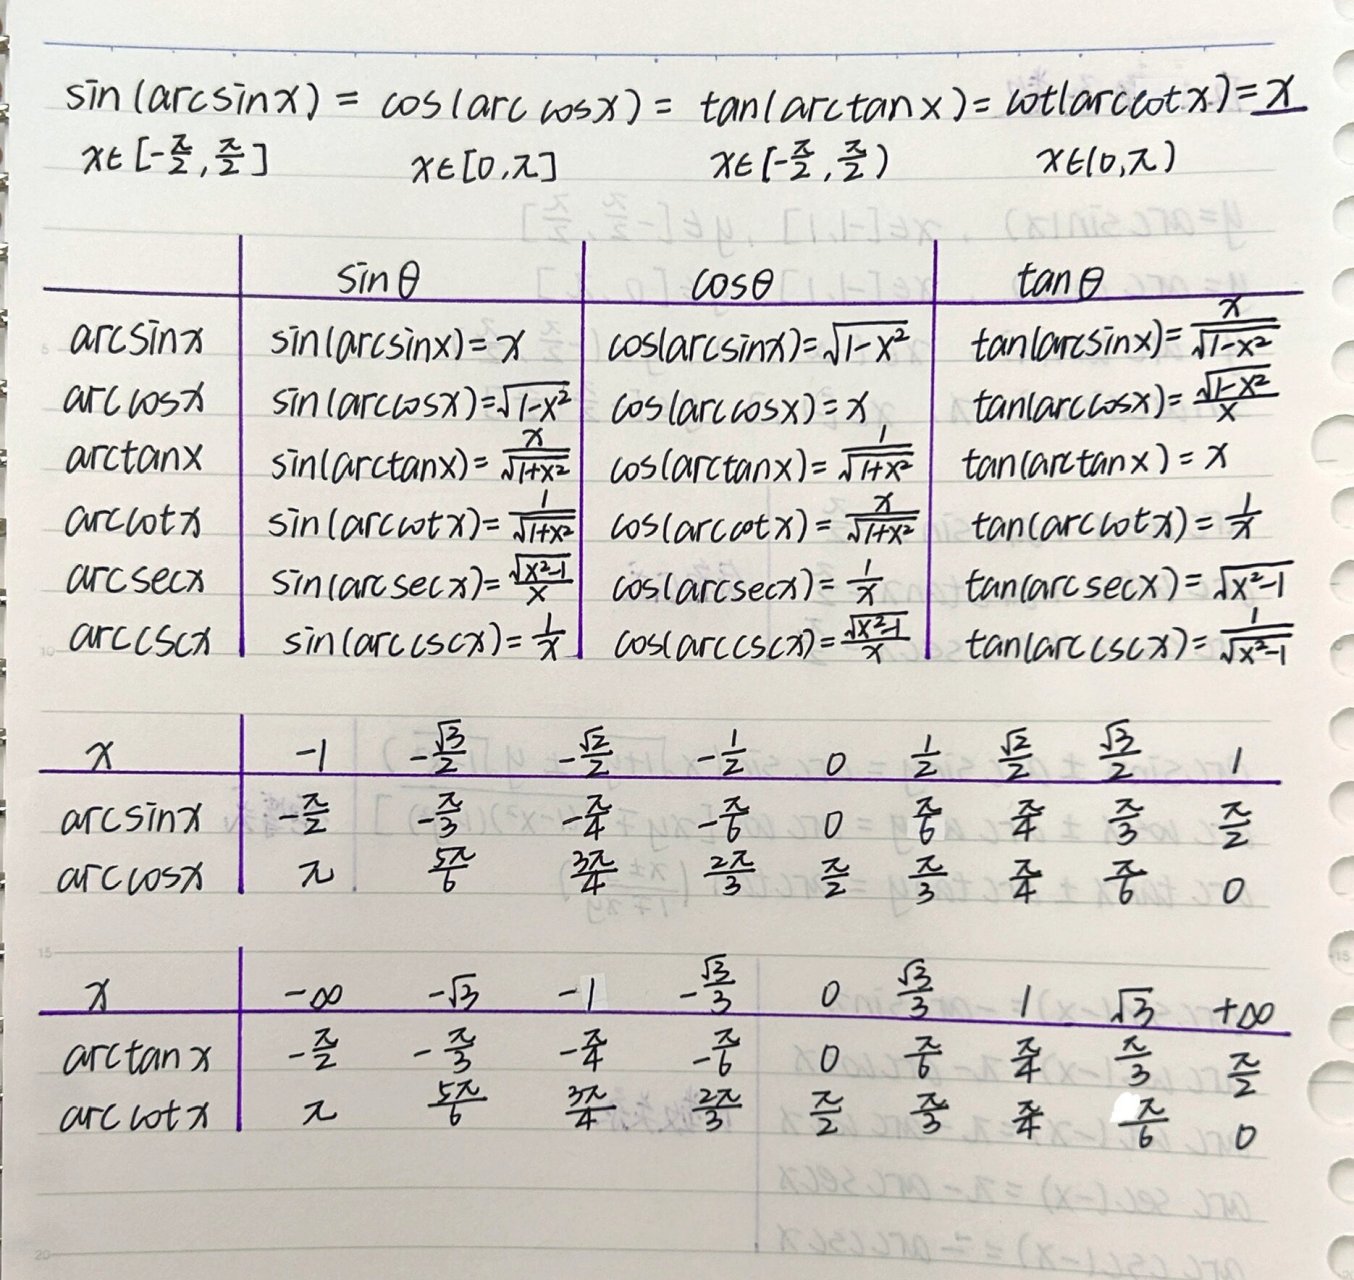 sin(arcsinx) = cos(arccosx) = tan(arctanx) = cot(arccotx) = x
x∈[-π/2, π/2] x∈[0,π] x∈[-π/2, π/2) x∈(0,π)
sinθ cosθ tanθ
arcsinx sin(arcsinx)=x cos(arcsinx)=√(1-x²) tan(arcsinx)=x/√(1-x²)
arccosx sin(arccosx)=√(1-x²) cos(arccosx)=x tan(arccosx)=√(1-x²)/x
arctanx sin(arctanx)=x/√(1+x²) cos(arctanx)=1/√(1+x²) tan(arctanx)=x
arccotx sin(arccotx)=1/√(1+x²) cos(arccotx)=x/√(1+x²) tan(arccotx)=1/x
arcsecx sin(arcsecx)=√(x²-1)/x cos(arcsecx)=1/x tan(arcsecx)=√(x²-1)
arccscx sin(arccscx)=1/x cos(arccscx)=√(x²-1)/x tan(arccscx)=1/√(x²-1)
x -1 -√3/2 -√2/2 -1/2 0 1/2 √2/2 √3/2 1
arcsinx -π/2 -π/3 -π/4 -π/6 0 π/6 π/4 π/3 π/2
arccosx π 5π/6 3π/4 2π/3 π/2 π/3 π/4 π/6 0
x -∞ -√3 -1 -√3/3 0 √3/3 1 √3 +∞
arctanx -π/2 -π/3 -π/4 -π/6 0 π/6 π/4 π/3 π/2
arccotx π 5π/6 3π/4 2π/3 π/2 π/3 π/4 π/6 0